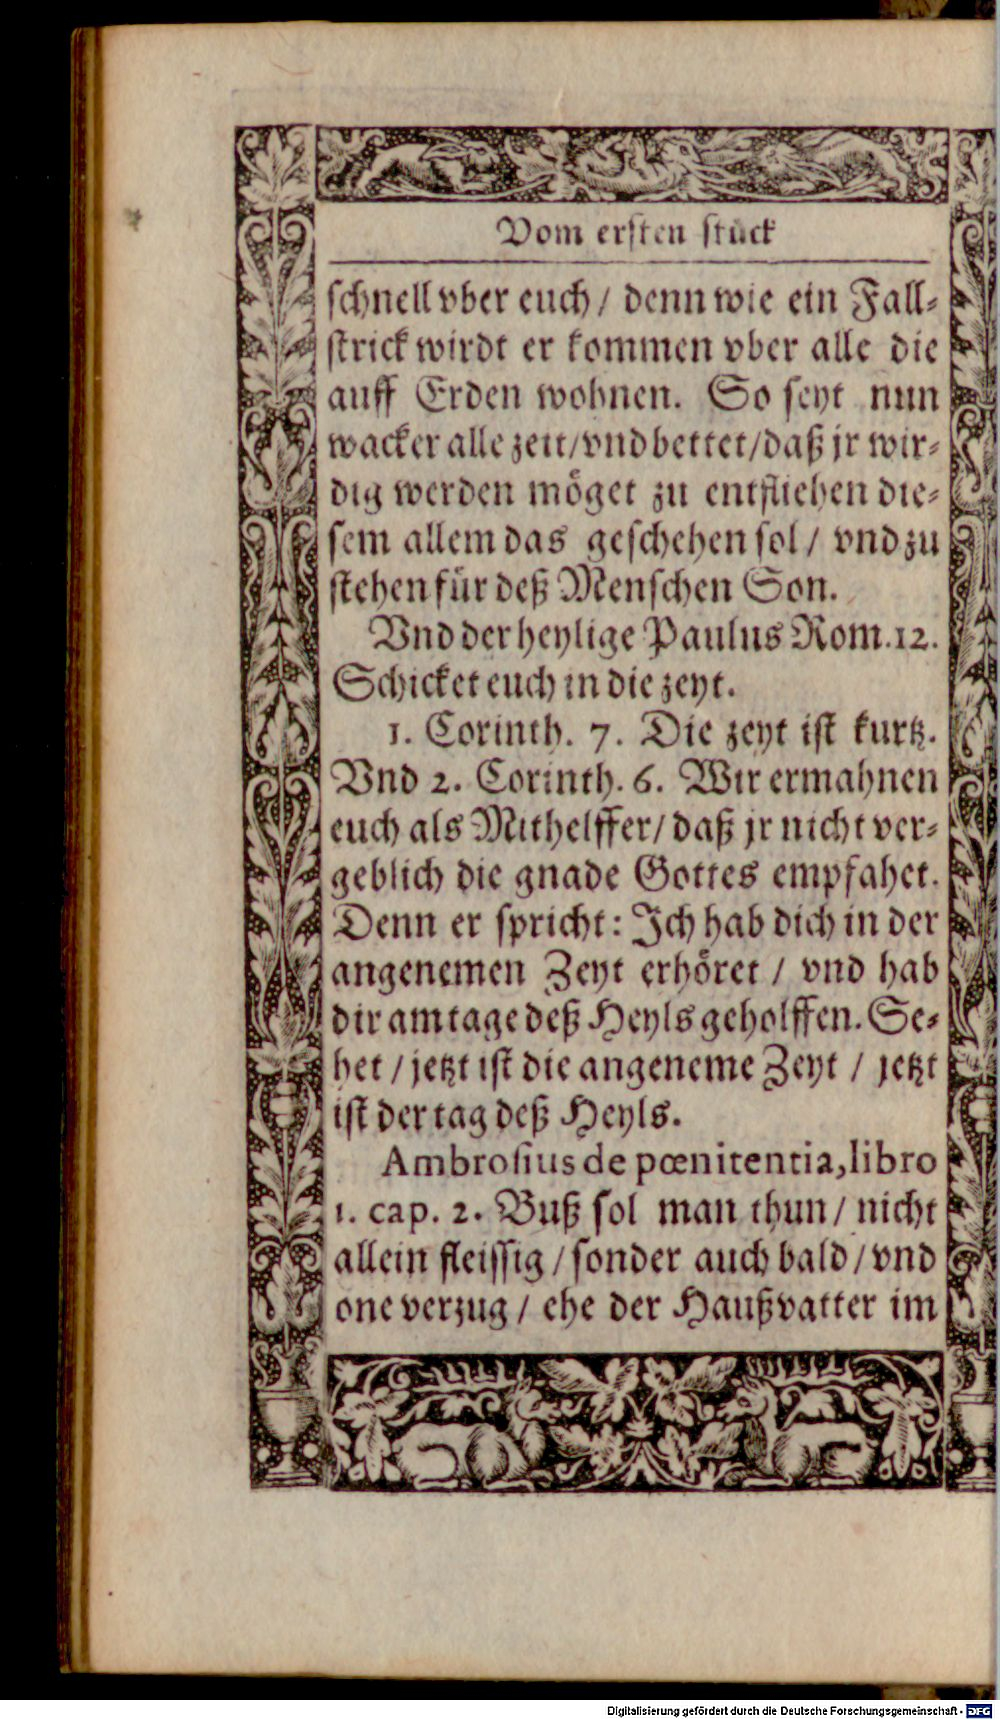 Vom ersten stück
schnell vber euch / denn wie ein Fall-
strick wirdt er kommen vber alle die
auff Erden wohnen. So seyt nun
wacker alle zeit/vnd bettet/daß jr wir-
dig werden möget zu entfliehen die-
sem allem das geschehen sol / vnd zu
stehen für deß Menschen Son.
Vnd der heylige Paulus Rom. 12.
Schicket euch in die zeyt.
1. Corinth. 7. Die zeyt ist kurtz.
Vnd 2. Corinth. 6. Wir ermahnen
euch als Mithelffer/ daß jr nicht ver-
geblich die gnade Gottes empfahet.
Denn er spricht: Ich hab dich in der
angenemen Zeyt erhöret / vnd hab
dir am tage deß Heyls geholffen. Se-
het / jetzt ist die angeneme Zeyt / jetzt
ist der tag deß Heyls.
Ambrosius de pœnitentia, libro
1. cap. 2. Buß sol man thun / nicht
allein fleissig / sonder auch bald / vnd
one verzug / ehe der Haußvatter im
Digitalisierung gefördert durch die Deutsche Forschungsgemeinschaft - DFG